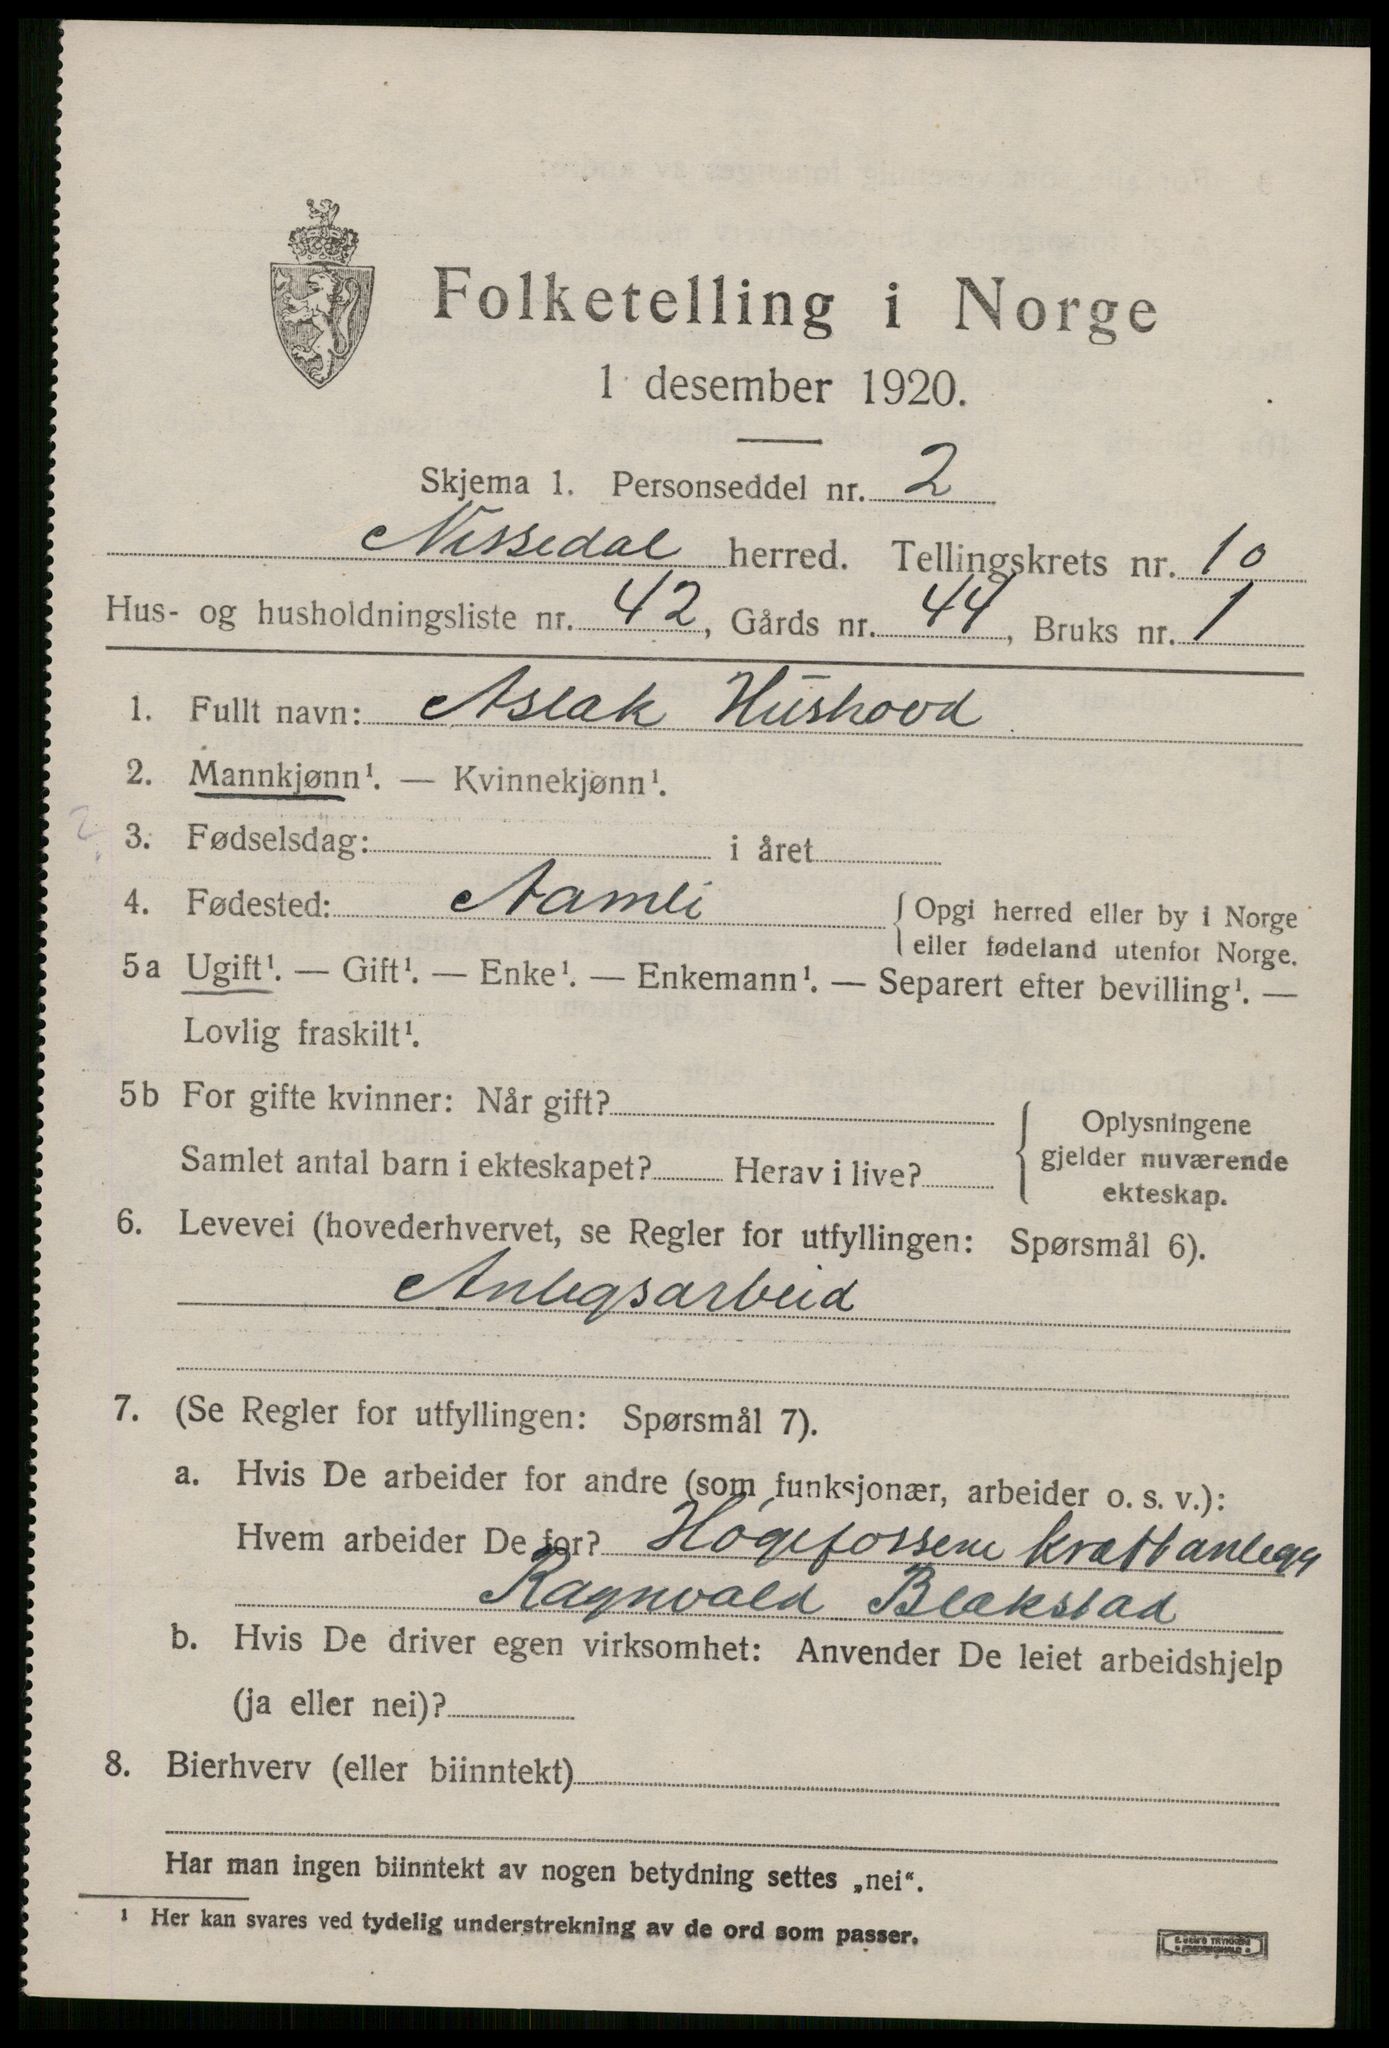 Folketelling i Norge
1 desember 1920.
Skjema 1. Personseddel nr. 2
Nissedal herred. Tellingskrets nr. 10
Hus- og husholdningsliste nr. 42, Gårds nr. 44, Bruks nr. 1
1. Fullt navn: Aslak Hushovd
2. Mannkjønn¹. — Kvinnekjønn¹.
3. Fødselsdag: i året
4. Fødested: Aamli { Opgi herred eller by i Norge
eller fødeland utenfor Norge.
5a Ugift¹. — Gift¹. — Enke¹. — Enkemann¹. — Separert efter bevilling¹. —
Lovlig fraskilt¹.
5b For gifte kvinner: Når gift?
Samlet antal barn i ekteskapet? Herav i live?
{ Oplysningene
gjelder nuværende
ekteskap.
6. Levevei (hovederhvervet, se Regler for utfyllingen: Spørsmål 6).
Anlegsarbeid
7. (Se Regler for utfyllingen: Spørsmål 7).
a. Hvis De arbeider for andre (som funksjonær, arbeider o. s. v.):
Hvem arbeider De for? Høgefossene kraftanlegg
Ragnvald Blakstad
b. Hvis De driver egen virksomhet: Anvender De leiet arbeidshjelp
(ja eller nei)?
8. Bierhverv (eller biinntekt)
Har man ingen biinntekt av nogen betydning settes „nei“.
¹ Her kan svares ved tydelig understrekning av de ord som passer.